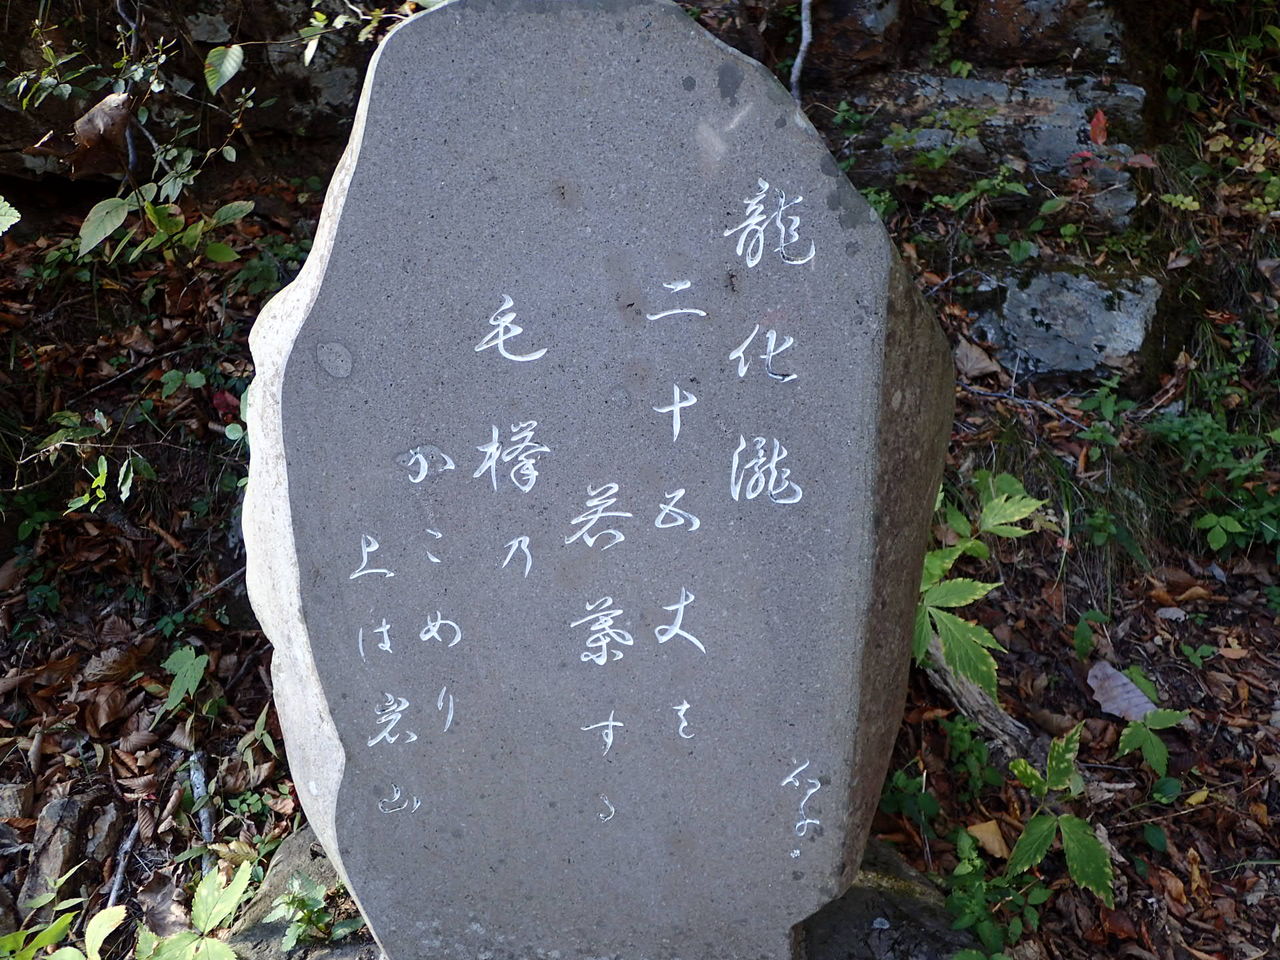 晶子
龍化瀧
二十五丈を
若葉する
毛欅乃
かこめり
上は岩山